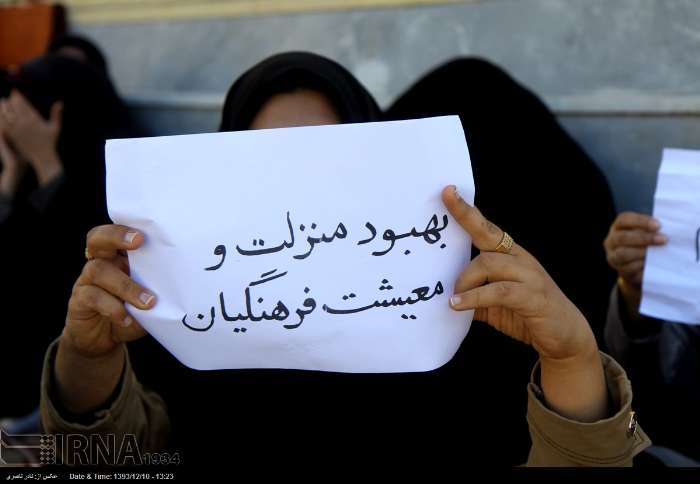 بهبود منزلت و
معیشت فرهنگیان
IRNA 1934
عکس از: نادر ناصری Date & Time: 1393/12/10 - 13:23